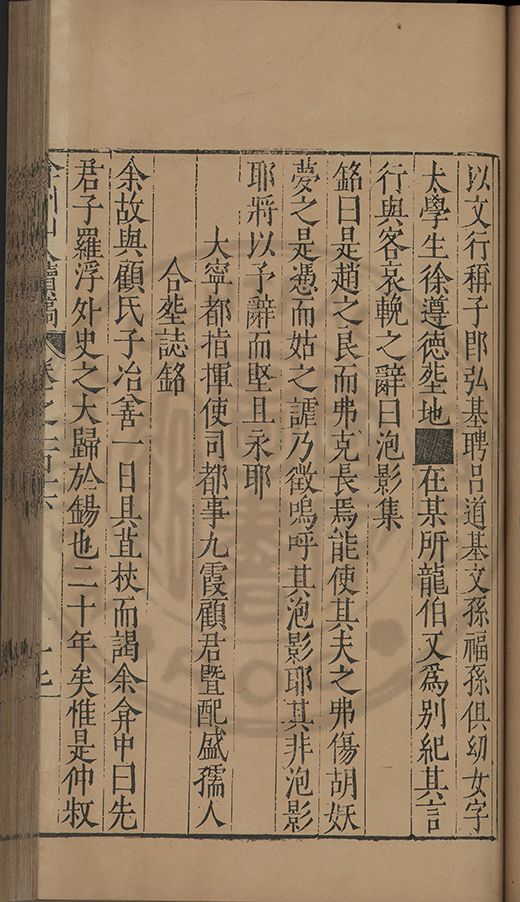 以文行稱子即弘基聘呂道基文孫福孫俱幼女字
太學生徐遵德塟地在某所龍伯又爲別紀其言
行與客哀輓之辭曰泡影集
銘曰是趙之良而弗克長焉能使其夫之弗傷胡妖
夢之是憑而姑之謔乃徵嗚呼其泡影耶其非泡影
耶將以予辭而堅且永耶
大寧都指揮使司都事九霞顧君暨配盛孺人
合塟誌銘
余故與顧氏子冶善一日具苴杖而謁余弇中曰先
君子羅浮外史之大歸於錫也二十年矣惟是仲叔